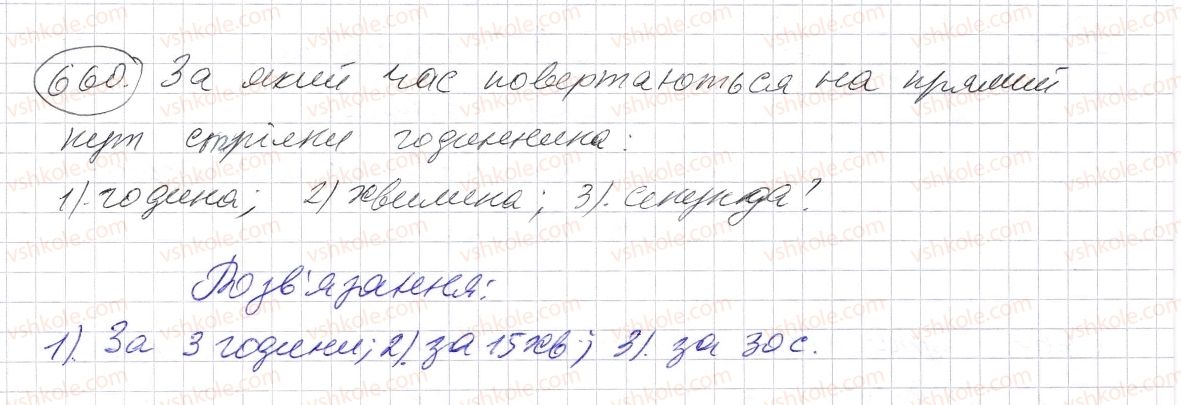 660. За який час повертаються на прямий
кут стрілки годинника:
1). година; 2) хвилина; 3). секунда?
Розв'язання:
1). За 3 години; 2). за 15 хв; 3). за 30 с.